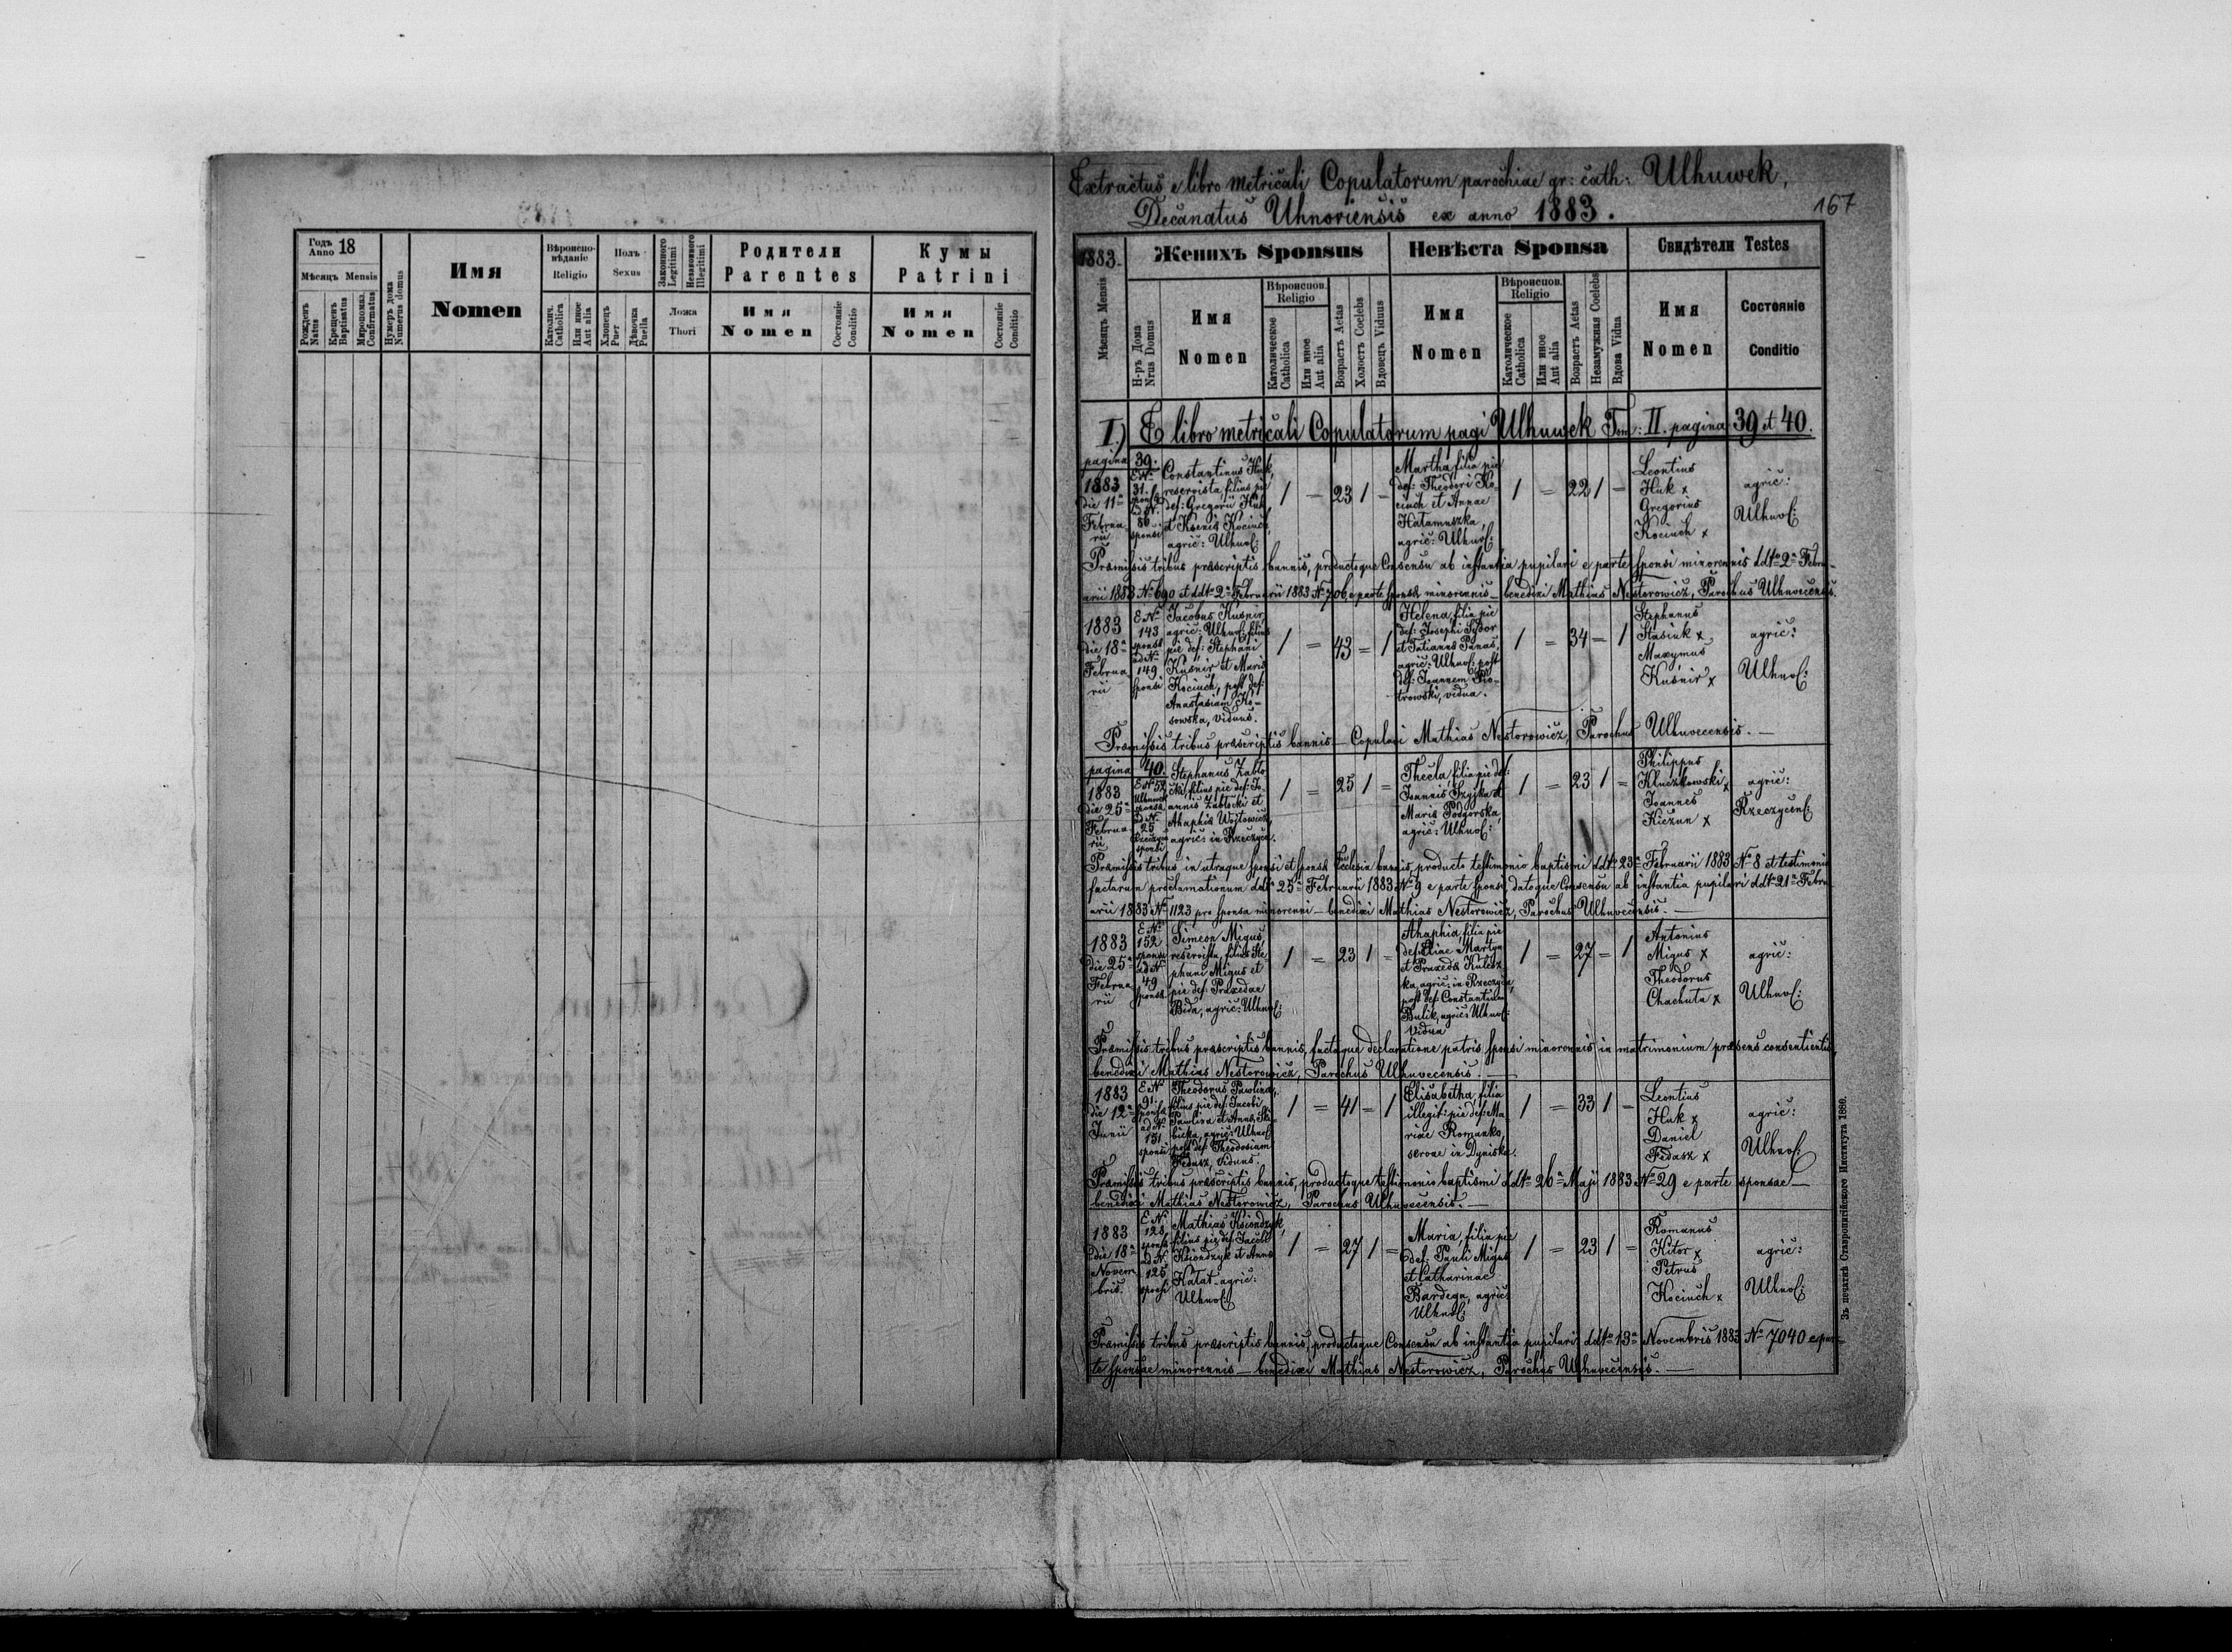 Годъ Anno 18
Мѣсяцъ Mensis
Рожденъ Natus
Крещенъ Baptisatus
Миропомаз. Confirmatus
Нумеръ дома Numerus domus
Имя
Nomen
Вѣроиспо-
вѣданіе
Religio
Католич. Catholica
Или иное Aut alia
Полъ
Sexus
Хлопецъ Puer
Дѣвочка Puella
Законного Legitimi
Незаконного Illegitimi
Ложа
Thori
Родители
Parentes
Имя
Nomen
Состояніе Conditio
Кумы
Patrini
Имя
Nomen
Состояніе Conditio
Extractus e libro metricali Copulatorum parochiae gr: cath: Ulhuwek,
Decanatus Uhnoviensis ex anno 1883.
167
1883.
Мѣсяцъ Mensis
Женихъ Sponsus
Н-ръ Дома Nrus Domus
Имя
Nomen
Вѣроиспов.
Religio
Католическое Catholica
Или иное Aut alia
Возрастъ Aetas
Холостъ Coelebs
Вдовецъ Viduus
Невѣста Sponsa
Имя
Nomen
Вѣроиспов.
Religio
Католическое Catholica
Или иное Aut alia
Возрастъ Aetas
Незамужная Coelebs
Вдова Vidua
Свидѣтели Testes
Имя
Nomen
Состояніе
Conditio
I.) E libro metricali Copulatorum pagi Ulhuwek Tom: II. pagina 39 et 40.
pagina 39.
1883
die 11a
Februa
rii
E No
31.
sponsae
ad N.
86
sponsi
Constantinus Huk,
reservista, filius pie
def: Gregorii Huk
et Ksenia Kociuch,
agric: Ulhuv:
1 = 23 1 =
Martha, filia pie
def: Theodori Ko-
ciuch et Annae
Hatamuszka,
agric: Ulhuv:
1 = 22 1 =
Leontius
Huk x
Gregorius
Kociuch x
agric:
Ulhuv:
Praemissis tribus praescriptis bannis, productoque Consensu ab instantia pupilari e parte sponsi minorennis ddto 2a Febru-
arii 1883 No 690 et ddto 2a Februarii 1883 No 706 e parte sponsae minorennis – benedixi Mathias Nestorowicz, Parochus Ulhuvecensis.
1883
die 18a
Februa
rii
E No
143
sponsae
ad No
149
sponsi
Jacobus Kuśnir,
agric: Ulhuv: filius
pie def: Stephani
Kuśnir et Maria
Kociuch, post def:
Anastasiam Ko-
sowska, viduus.
1 = 43 = 1
Helena, filia pie
def: Josephi Sydor
et Tatianae Panas,
agric: Ulhuv: post
def: Joannem Pio-
trowski, vidua.
1 = 34 = 1
Stephanus
Stasiuk x
Maxymus
Kuśnir x
agric:
Ulhuv:
Praemissis tribus praescriptis bannis – Copulavi Mathias Nestorowicz, Parochus Ulhuvecensis. –
pagina 40.
1883
die 25a
Februa
rii
E No 52
Ulhuwek
sponsae
ad N.
25
sponsi
Stephanus Zabło
cki, filius pie def: Jo-
annis Zabłocki et
Ahaphia Wojtowicz,
agric: in Rzeczyca.
1 = 25 1 =
Thecla, filia pie def:
Joannis Szyjka et
Maria Podgorska,
agric: Ulhuv:
1 = 23 1 =
Philippus
Kluczkowski x
Joannes
Kiczun x
agric:
Rzeczycens:
Praemissis tribus in utraque sponsi et sponsae Ecclesia bannis, producto testimonio baptismi ddto 23a Februarii 1883 No 8 et testimonio
factarum proclamationum ddto 25a Februarii 1883 No 9 e parte sponsi, datoque Consensu ab instantia pupilari ddto 21a Febru-
arii 1883 No 1123 pro sponsa minorenni – benedixi Mathias Nestorowicz, Parochus Ulhuvecensis. –
1883
die 25a
Februa
rii
E No
152
sponsi
ad N.
49
sponsae
Simeon Migus,
reservista, filius Ste-
phani Migus et
pie def: Praxedae
Bida, agric: Ulhuv:
1 = 23 1 =
Ahaphia, filia pie
def: Eliae Martyn
et Praxeda Kulesz
ka, agric: in Rzeczyca,
post def: Constantium
Bulik, agric: Ulhuv:
vidua
1 = 27 = 1
Antonius
Migus x
Theodorus
Chachuta x
agric:
Ulhuv:
Praemissis tribus praescriptis bannis, factaque declaratione patris sponsi minorennis in matrimonium praesens consentientis,
benedixi Mathias Nestorowicz, Parochus Ulhuvecensis. –
1883
die 12a
Junii
E N.
91.
sponsae
ad N.
131
sponsi
Theodorus Pawlina,
filius pie def: Jacobi
Pawlina et Annae
agric: Ulhuv:
post def: Theodosiam
Fedasz, viduus.
1 = 41 = 1
Elisabetha, filia
illegit: pie def: Ma-
riae Romanko,
servae in Dyniska.
1 = 33 1 =
Leontius
Huk x
Daniel
Fedasz x
agric:
Ulhuv:
Praemissis tribus praescriptis bannis, productoque testimonio baptismi ddto 26a Maji 1883 No 29 e parte sponsae –
benedixi Mathias Nestorowicz, Parochus Ulhuvecensis. –
1883
die 18a
Novem
bris.
E N.
128
sponsae
ad N.
125
sponsi
Mathias Ksiondzyk,
filius pie def: Jacobi
Ksiondzyk et Anna
Kałat – agric:
Ulhuv:
1 = 27 1 =
Maria, filia pie
def: Pauli Migus
et Catharinae
Bardega, agric:
Ulhuv:
1 = 23 1 =
Romanus
Kitor x
Petrus
Kociuch x
agric:
Ulhuv:
Praemissis tribus praescriptis bannis, productoque Consensu ab instantia pupilari ddto 13a Novembris 1883 No 7040 e par-
te sponsae minorennis – benedixi Mathias Nestorowicz, Parochus Ulhuvecensis. –
Зъ печатнѣ Ставропигійского Института 1880.